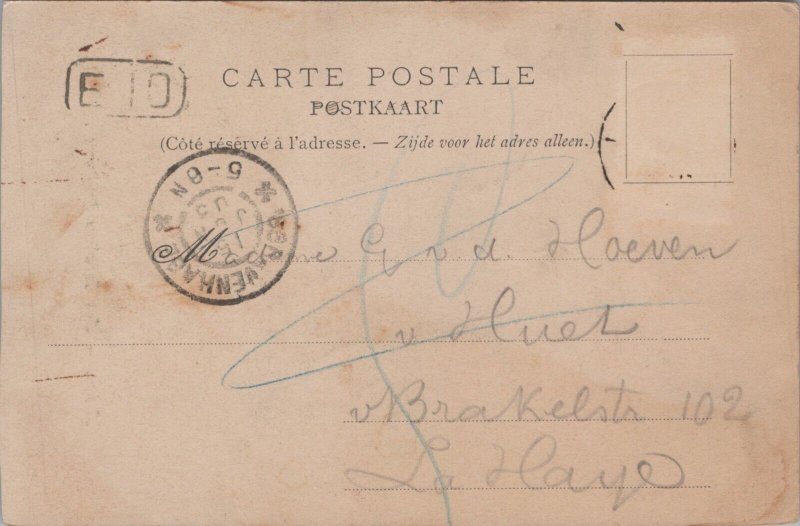 CARTE POSTALE
POSTKAART
(Côté réservé à l'adresse. — Zijde voor het adres alleen.)
5-8N
'SGRAVENHAGE
Madame G. v. d. Hoeven
v Huet
v Brakelstr 102
La Haye